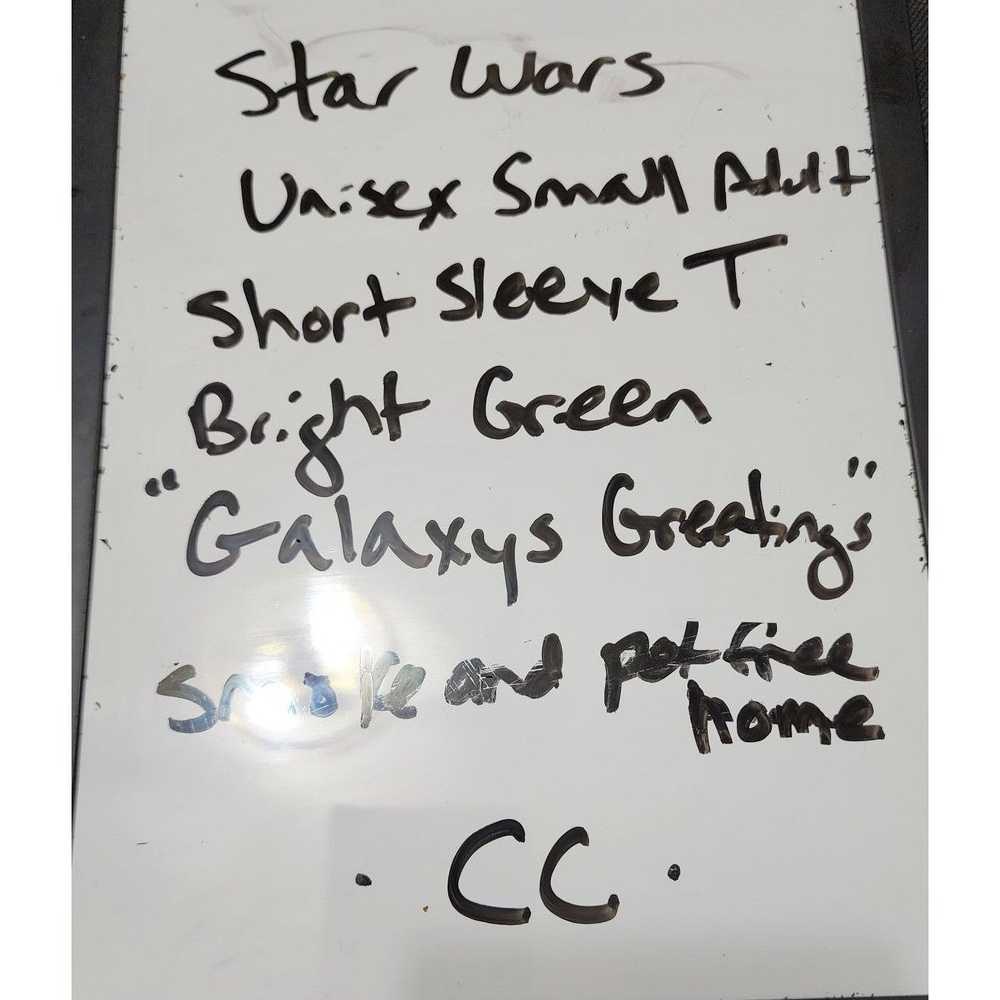 Star Wars
Unisex Small Adult
Short Sleeve T
Bright Green
"Galaxys Greetings"
smoke and pet free
home
. CC .